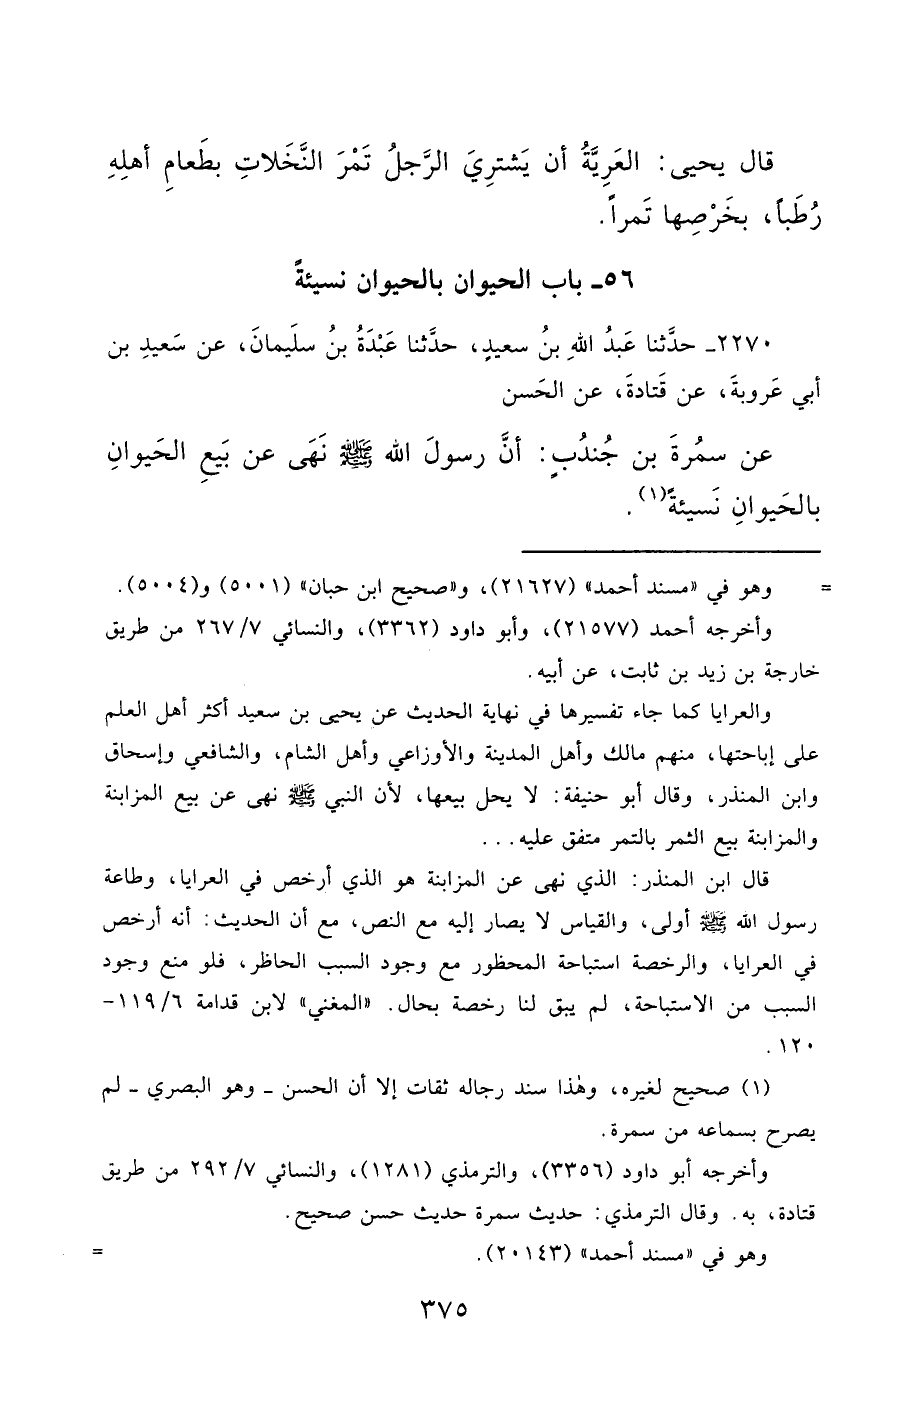 قال يحيى: العَرِيَّةُ أن يَشترِيَ الرَّجلُ تَمْرَ النَّخَلاتِ بطَعامِ أهلِهِ
رُطَباً، بخَرْصِها تَمراً.
٥٦- باب الحيوان بالحيوان نسيئةً
٢٢٧٠- حدَّثنا عَبدُ اللهِ بنُ سعيدٍ، حدَّثنا عَبْدَةُ بنُ سليمانَ، عن سَعيدِ بن
أبي عَروبةَ، عن قَتادةَ، عن الحَسن
عن سمُرةَ بن جُندُبٍ: أنَّ رسولَ الله ﷺ نَهَى عن بَيعِ الحَيوانِ
بالحَيوانِ نَسيئةً(١).
= وهو في «مسند أحمد» (٢١٦٢٧)، و«صحيح ابن حبان» (٥٠٠١) و(٥٠٠٤).
وأخرجه أحمد (٢١٥٧٧)، وأبو داود (٣٣٦٢)، والنسائي ٢٦٧/٧ من طريق
خارجة بن زيد بن ثابت، عن أبيه.
والعرايا كما جاء تفسيرها في نهاية الحديث عن يحيى بن سعيد أكثر أهل العلم
على إباحتها، منهم مالك وأهل المدينة والأوزاعي وأهل الشام، والشافعي وإسحاق
وابن المنذر، وقال أبو حنيفة: لا يحل بيعها، لأن النبي ﷺ نهى عن بيع المزابنة
والمزابنة بيع الثمر بالتمر متفق عليه...
قال ابن المنذر: الذي نهى عن المزابنة هو الذي أرخص في العرايا، وطاعة
رسول الله ﷺ أولى، والقياس لا يصار إليه مع النص، مع أن الحديث: أنه أرخص
في العرايا، والرخصة استباحة المحظور مع وجود السبب الحاظر، فلو منع وجود
السبب من الاستباحة، لم يبق لنا رخصة بحال. «المغني» لابن قدامة ١١٩/٦-
١٢٠.
(١) صحيح لغيره، وهٰذا سند رجاله ثقات إلا أن الحسن - وهو البصري - لم
يصرح بسماعه من سمرة.
وأخرجه أبو داود (٣٣٥٦)، والترمذي (١٢٨١)، والنسائي ٢٩٢/٧ من طريق
قتادة، به. وقال الترمذي: حديث سمرة حديث حسن صحيح.
وهو في «مسند أحمد» (٢٠١٤٣). =
٣٧٥